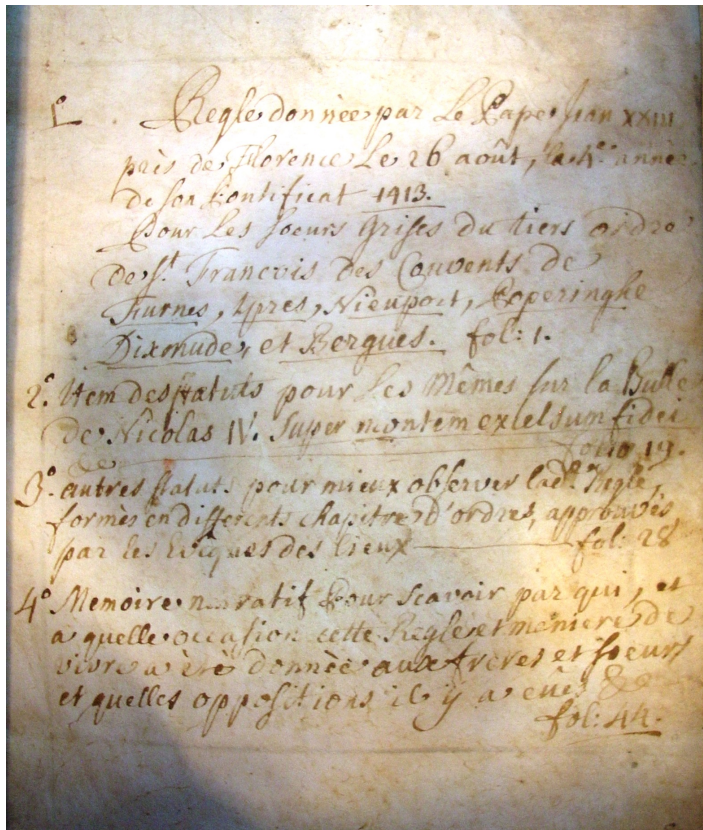 1º. Regle donnée par Le Pape Jean XXIII
près de Florence Le 26 août, la 4e. année
de son Pontificat 1413.
Pour Les Soeurs Grises du tiers ordre
de St. François des Couvents de
Furnes, Ypres, Nieuport, Poperinghe
Dixmude, et Bergues. fol: 1.
2º. Item des statuts pour Les Mêmes sur la Bulle
de Nicolas IV. Super montem excelsum fidei
&c folio 19.
3º. autres statuts pour mieux observer lade. Regle,
formés en differents chapitres d'ordres, approuvés
par les Evêques des lieux fol: 28
4º Memoire narratif Pour scavoir par qui, et
a quelle occasion cette Regle et maniere de
vivre a été donnée aux freres et soeurs
et quelles oppositions il y a eües &c
fol: 44.